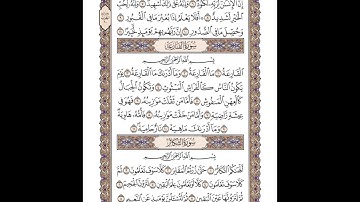 إِنَّ ٱلْإِنسَٰنَ لِرَبِّهِۦ لَكَنُودٌ ٦ وَإِنَّهُۥ عَلَىٰ ذَٰلِكَ لَشَهِيدٌ ٧ وَإِنَّهُۥ لِحُبِّ
ٱلْخَيْرِ لَشَدِيدٌ ٨ ۞ أَفَلَا يَعْلَمُ إِذَا بُعْثِرَ مَا فِي ٱلْقُبُورِ ٩
وَحُصِّلَ مَا فِي ٱلصُّدُورِ ١٠ إِنَّ رَبَّهُم بِهِمْ يَوْمَئِذٍ لَّخَبِيرٌ ١١
سُورَةُ القَارِعَةِ
بِسْمِ ٱللَّهِ ٱلرَّحْمَٰنِ ٱلرَّحِيمِ
ٱلْقَارِعَةُ ١ مَا ٱلْقَارِعَةُ ٢ وَمَآ أَدْرَىٰكَ مَا ٱلْقَارِعَةُ ٣ يَوْمَ
يَكُونُ ٱلنَّاسُ كَٱلْفَرَاشِ ٱلْمَبْثُوثِ ٤ وَتَكُونُ ٱلْجِبَالُ
كَٱلْعِهْنِ ٱلْمَنفُوشِ ٥ فَأَمَّا مَن ثَقُلَتْ مَوَٰزِينُهُۥ ٦ فَهُوَ فِي
عِيشَةٍ رَّاضِيَةٍ ٧ وَأَمَّا مَنْ خَفَّتْ مَوَٰزِينُهُۥ ٨ فَأُمُّهُۥ
هَاوِيَةٌ ٩ وَمَآ أَدْرَىٰكَ مَا هِيَهْ ١٠ نَارٌ حَامِيَةٌ ١١
سُورَةُ التَّكَاثُرِ
بِسْمِ ٱللَّهِ ٱلرَّحْمَٰنِ ٱلرَّحِيمِ
أَلْهَىٰكُمُ ٱلتَّكَاثُرُ ١ حَتَّىٰ زُرْتُمُ ٱلْمَقَابِرَ ٢ كَلَّا سَوْفَ تَعْلَمُونَ ٣ ثُمَّ
كَلَّا سَوْفَ تَعْلَمُونَ ٤ كَلَّا لَوْ تَعْلَمُونَ عِلْمَ ٱلْيَقِينِ ٥ لَتَرَوُنَّ ٱلْجَحِيمَ ٦
ثُمَّ لَتَرَوُنَّهَا عَيْنَ ٱلْيَقِينِ ٧ ثُمَّ لَتُسْـَٔلُنَّ يَوْمَئِذٍ عَنِ ٱلنَّعِيمِ ٨